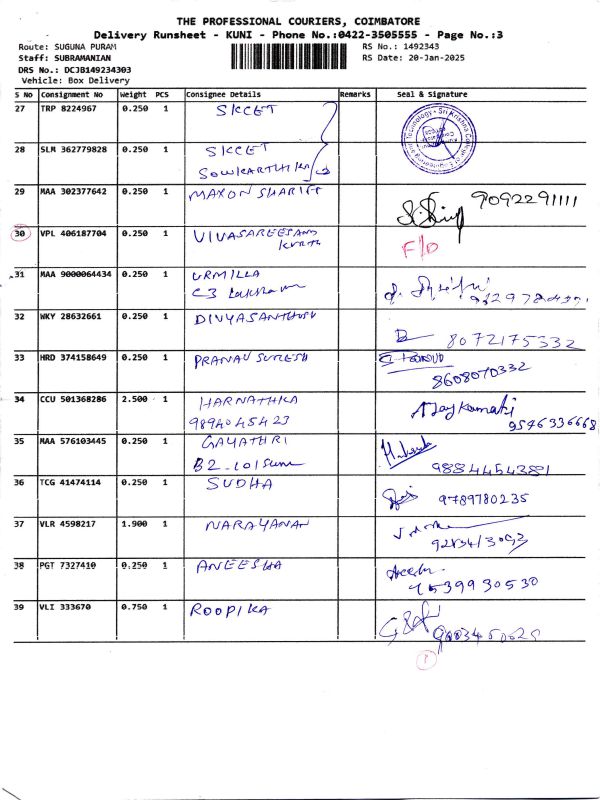 THE PROFESSIONAL COURIERS, COIMBATORE
Delivery Runsheet - KUNI - Phone No.:0422-3505555 - Page No.:3
Route: SUGUNA PURAM
RS No.: 1492343
Staff: SUBRAMANIAN
RS Date: 20-Jan-2025
DRS No.: DCJB149234303
Vehicle: Box Delivery
S No Consignment No Weight PCS Consignee Details Remarks Seal & Signature
27 TRP 8224967 0.250 1 SKCET
28 SLM 362779828 0.250 1 SKCET
SOWKARTHIKA
29 MAA 302377642 0.250 1 MAXON SHARIFF 9092291111
30 VPL 406187704 0.250 1 VIVASAREESAND F/D
31 MAA 9000064434 0.250 1 URMILLA
C3
32 WKY 28632661 0.250 1 DIVYASANTHOSH 8072175332
33 HRD 374158649 0.250 1 PRANAV SURESH
8608070332
34 CCU 501368286 2.500 1 HARNATHIKA
9894045423 9546336668
35 MAA 576103445 0.250 1 GAYATHRI
B2 - 101 9884454381
36 TCG 41474114 0.250 1 SUDHA 9789780235
37 VLR 4598217 1.900 1 NARAYANAN
38 PGT 7327410 0.250 1 ANEESHA
7539930530
39 VLI 333670 0.750 1 ROOPIKA